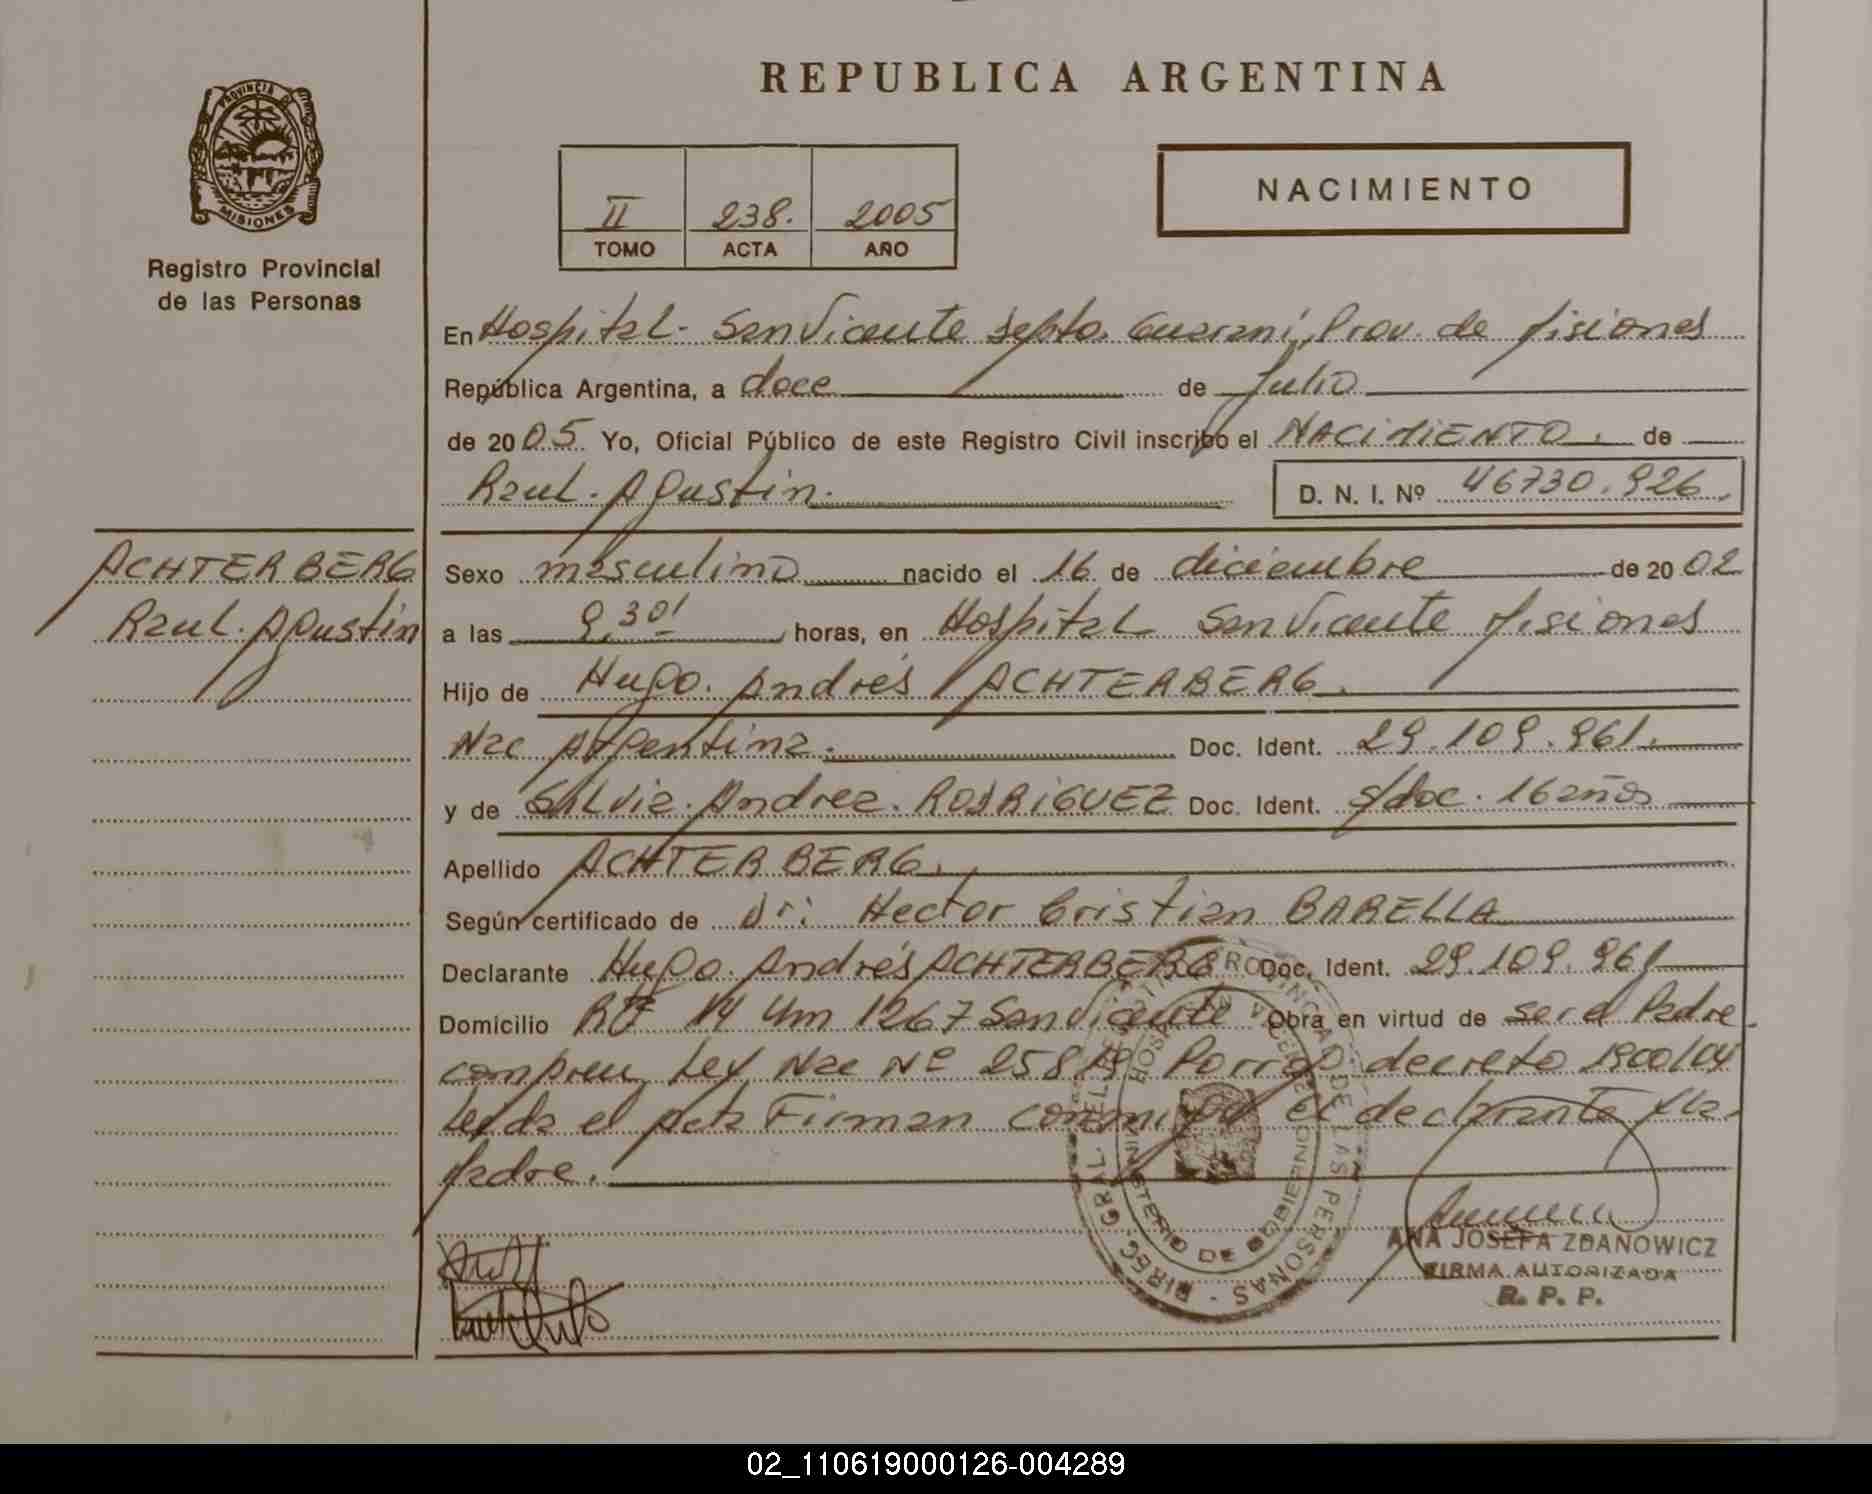 REPUBLICA ARGENTINA
PROVINCIA DE MISIONES
Registro Provincial
de las Personas
II 238. 2005
TOMO ACTA AÑO
NACIMIENTO
En Hospital - San Vicente Depto. Guaraní, Prov. de Misiones
República Argentina, a doce de Julio
de 20 05. Yo, Oficial Público de este Registro Civil inscribo el NACIMIENTO. de
Raul. Agustin. D. N. I. Nº 46730.926.
ACHTERBERG
Raul. Agustin
Sexo masculino nacido el 16 de diciembre de 20 02
a las 9,30' horas, en Hospital San Vicente Misiones
Hijo de Hugo. Andrés ACHTERBERG.
Nac Argentina. Doc. Ident. 29.109.961.
y de Silvia. Andrea. RODRIGUEZ Doc. Ident. s/doc. 16 años
Apellido ACHTERBERG.
Según certificado de Dr: Hector Cristian BARELLA
Declarante Hugo. Andrés ACHTERBERG Doc. Ident. 29.109.961
Domicilio 14 Km 1267 San Vicente Obra en virtud de ser el Padre
Ley Nac Nº 25819 decreto 1900/04
Leida el Acta Firman conmigo el declarante y la
Madre.
DIREC. GRAL. DEL REGISTRO PROVINCIAL DE LAS PERSONAS
HOSP. SAN VICENTE
MINISTERIO DE GOBIERNO
ANA JOSEFA ZDANOWICZ
FIRMA AUTORIZADA
R. P. P.
02_110619000126-004289